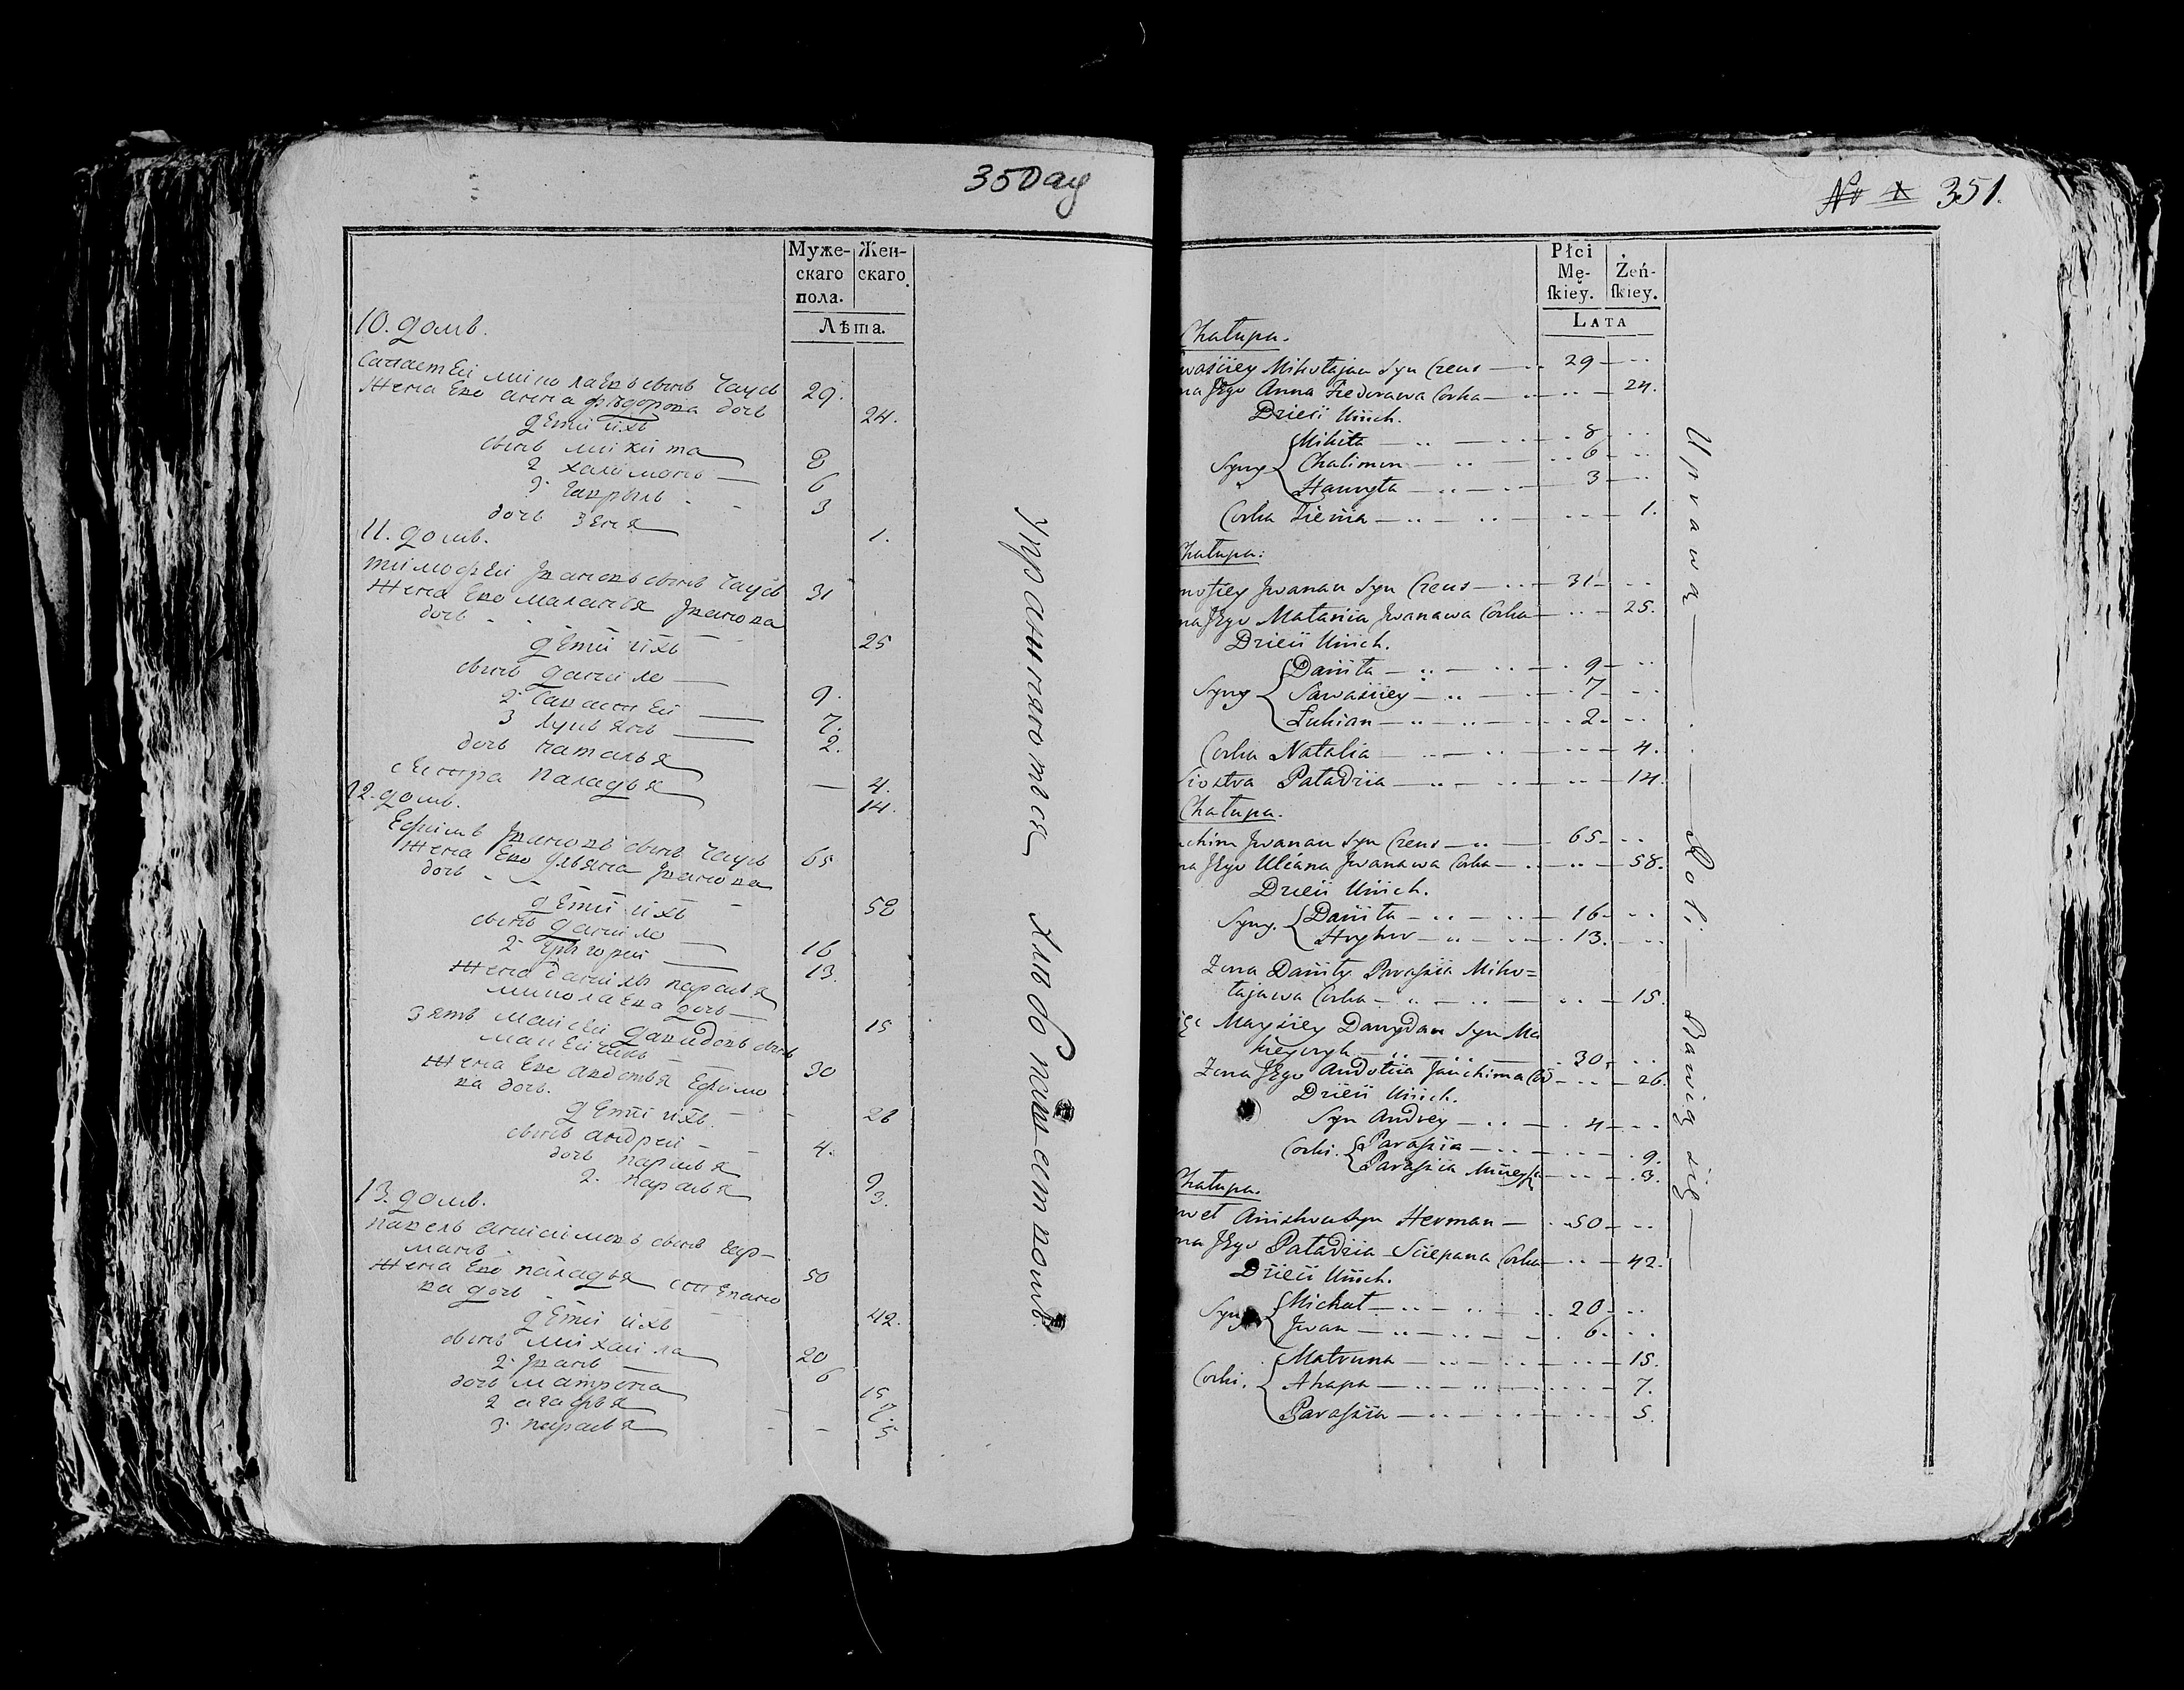 350 ау
Муже-
скаго
пола.
Жен-
скаго.
Лѣта.
10. домъ.
Савастей миколаевъ сынъ Чаусъ 29.
жена Ево анна фѣдорова дочь 24.
дѣти ихъ
сынъ микита 8
2 халимонъ 6
3 гаврыль 3
дочь зеня 1.
11. домъ.
тимофей Ивановъ сынъ Чаусъ 31
жена Ево маланья Иванова
дочь 25
дѣти ихъ
сынъ данило 9.
2 Савастей 7.
3 лукьянъ 2.
дочь наталья 4.
сестра паладья 14.
12. домъ.
Ефимъ Ивановъ сынъ Чаусъ 65
жена Ево Ульяна Иванова
дочь 58
дѣти ихъ
сынъ данило 16
2 григорей 13.
жена данилы парасья
миколаева дочь 15
зять майсей давидовъ сынъ
30
жена Ево авдотья Ефимо
ва дочь. 26
дѣти ихъ.
сынъ андрей 4.
дочь парасья 9
2. парасья 3.
13. домъ.
павелъ анисимовъ сынъ гер-
манъ 50
жена Ево паладья степано
ва дочь 42.
дѣти ихъ
сынъ михайла 20
2. Иванъ 6
дочь матрона 15
2 агафья 7.
3. парасья 5
Упражняются хлебопашеством.
No 1 351.
Płci
Mę-
skiey.
Żeń-
skiey.
LATA
Chałupa.
wasiiey Mikołajau Syn Czeus 29
na Jego Anna Fiedorawa Corka 24.
Dzieci Unich.
Syny Mikita 8
Chalimon 6
Hauryła 3
Corka Zienia 1.
Chałupa:
mofiey Jwanau Syn Czeus 31
na Jego Małania Jwanawa Corka 25.
Dzieci Unich.
Syny Daniła 9
Sawasiiey 7
Łukian 2
Corka Natalia 4.
Siostra Paładzia 14.
Chałupa.
chim Jwanau Syn Czeus 65
na Jego Uliana Jwanawa Corka 58.
Dzieci Unich.
Syny. Daniła 16
Hryhor 13.
Zona Daniły Parasia Miko=
łajawa Corka 15.
Maysiey Dauydau Syn Ma
30.
Zona Jego Audotia Jauchima 26.
Dzieci Unich.
Syn Andrey 4
Corki. Parasia 9.
Parasia Mnieysza 3.
Chałupa.
weł Anishou Syn Herman 50
na Jego Paładzia Sciepana Corka 42.
Dzieci Unich.
Syny Michał 20
Jwan 6.
Corki. Matruna 15.
Ahapa 7.
Parasia 5.
Uprawą Roli Bawią się